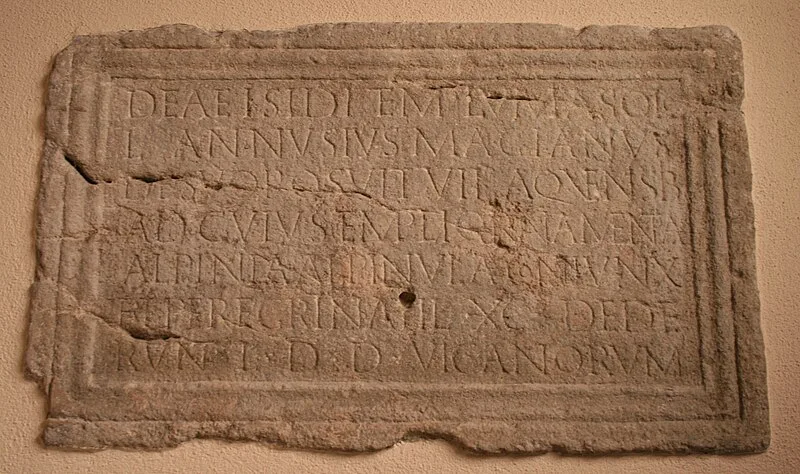 DEAE ISIDI TEMPLVM A SOLO
L ANNVSIVS MAGIANVS
DE SVO POSVIT VIK AQVENSIB
AD CVIVS TEMPLI ORNAMENTA
ALPINIA ALPINVLA CONIVNX
ET PEREGRINA FIL XC DEDE
RVNT L D D VICANORVM